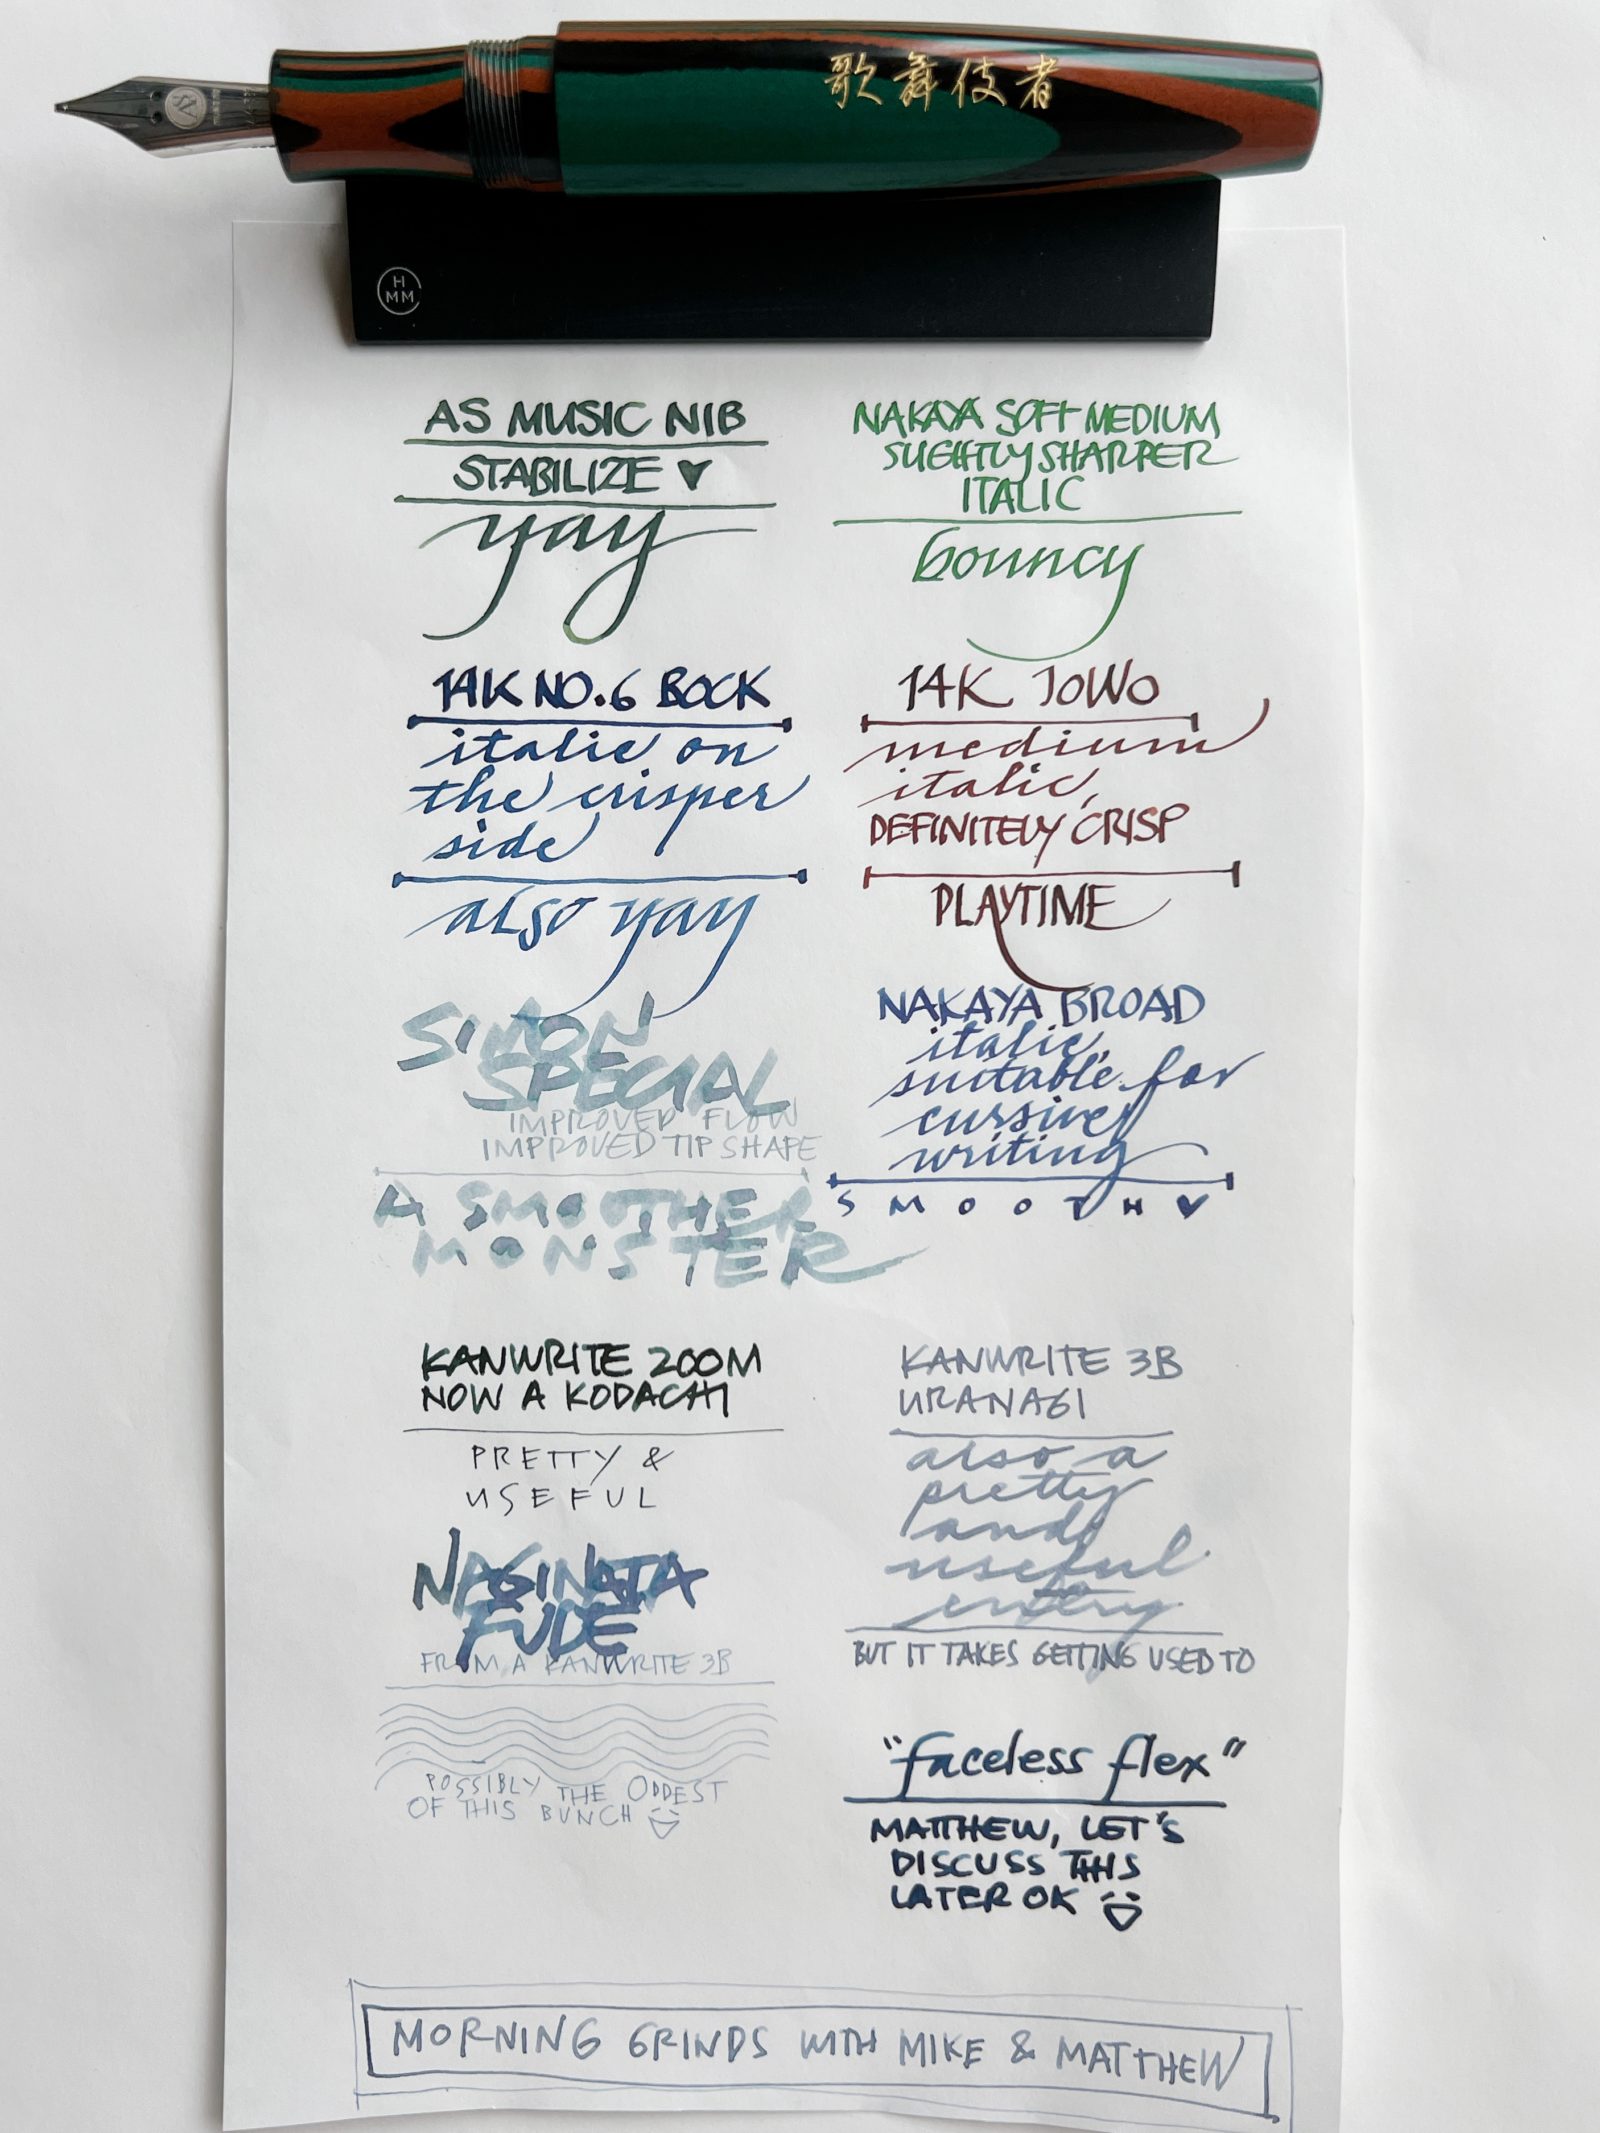 歌舞伎者
H
MM
AS MUSIC NIB
STABILIZE
yay
NAKAYA SOFT MEDIUM
SLIGHTLY SHARPER
ITALIC
bouncy
14K NO.6 BOCK
italic on
the crisper
side
also yay
14K JOWO
medium
italic,
DEFINITELY CRISP
PLAYTIME
SIMON
SPECIAL
IMPROVED FLOW
IMPROVED TIP SHAPE
A SMOOTHER
MONSTER
NAKAYA BROAD
italic,
suitable for
cursive
writing
SMOOTH
KANWRITE ZOOM
NOW A KODACHI
PRETTY &
USEFUL
KANWRITE 3B
URANAGI
also a
pretty
and
useful
entry
BUT IT TAKES GETTING USED TO
NAGINATA
FUDE
FROM A KANWRITE 3B
POSSIBLY THE ODDEST
OF THIS BUNCH
"faceless flex"
MATTHEW, LET'S
DISCUSS THIS
LATER OK
MORNING GRINDS WITH MIKE & MATTHEW